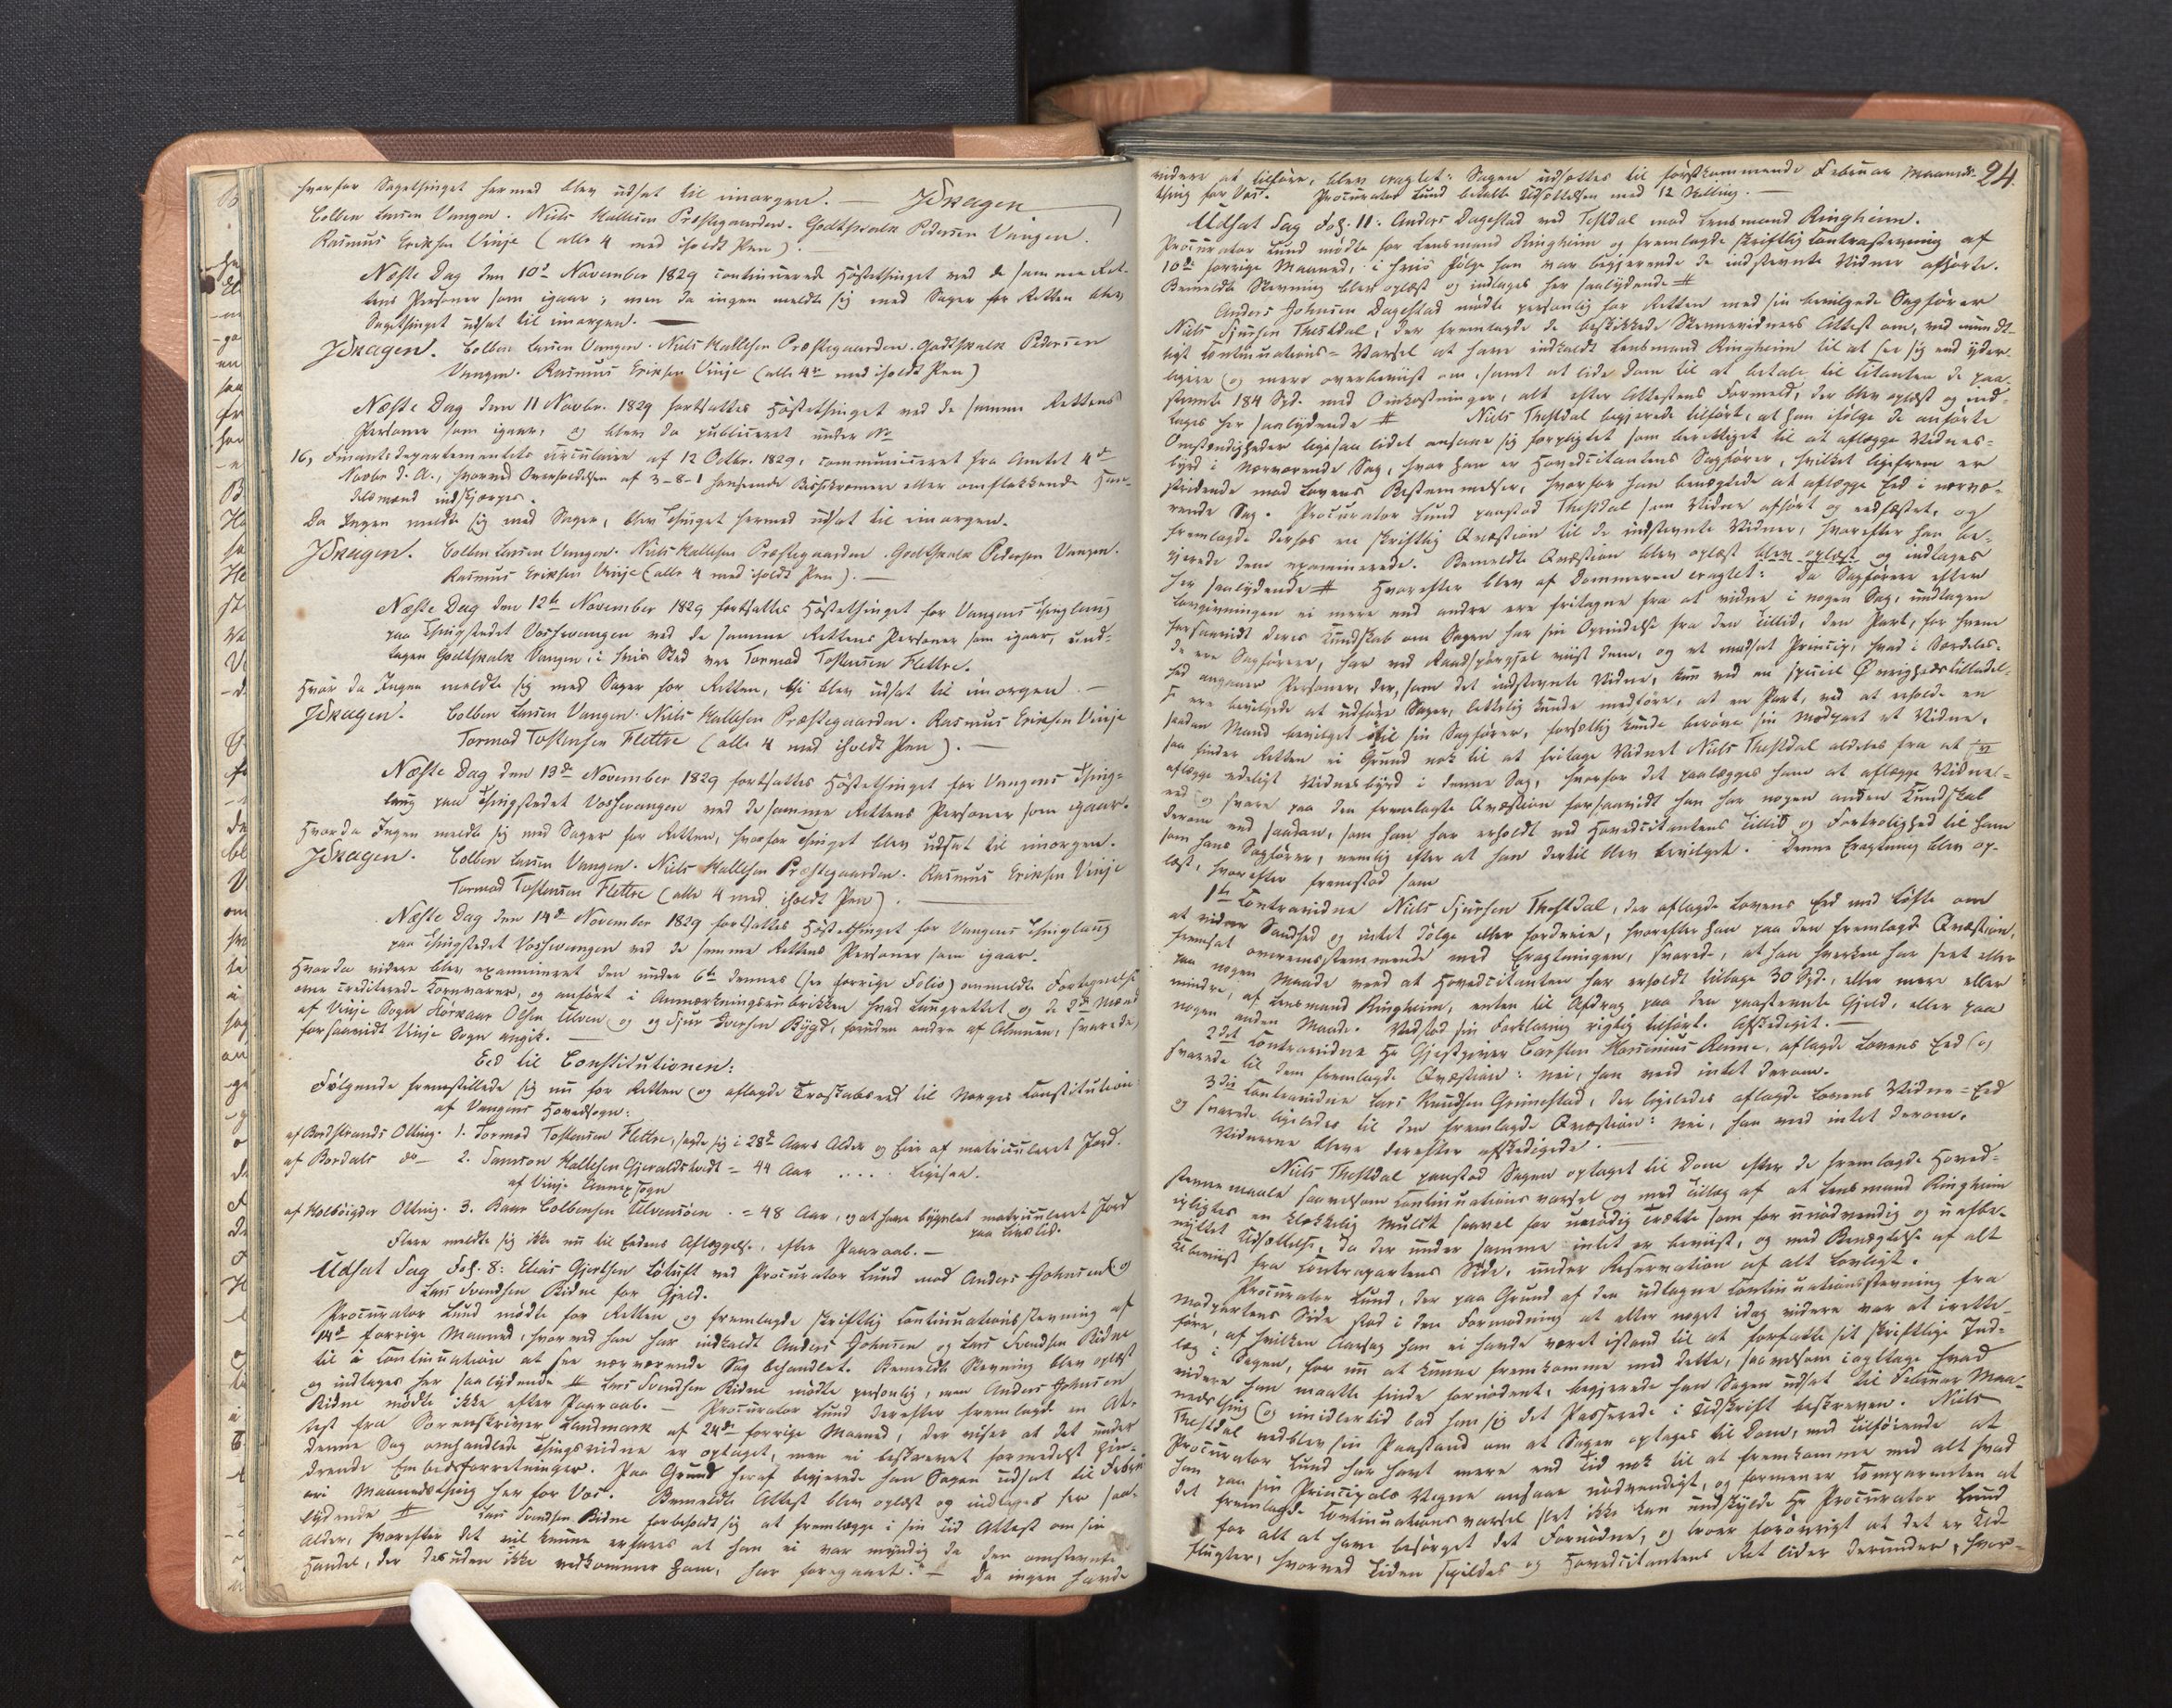 hvorfor Sagethinget hermed blev udsat til imorgen. — JKragen
Colben Larsen Vangen. Niels Hallesen Præstegaarden. Godtskalk Pedersen Vangen.
Rasmus Eriksen Vinje (alle 4 med iholdt Pen).
Næste Dag den 10de November 1829 continuerede Høstethinget ved de samme Ret-
tens Personer som igaar; men da ingen meldte sig med Sager for Retten blev
Sagethinget udsat til imorgen. —
JKragen. Colben Larsen Vangen. Niels Hallesen Præstegaarden. Godtskalk Pedersen
Vangen. Rasmus Eriksen Vinje (alle 4re med iholdt Pen)
Næste Dag den 11 Novbr. 1829 fortsattes Høstethinget ved de samme Rettens
Personer som igaar, og blev da publiceret under No
16, Finantsdepartementets Circulaire af 12 Octbr. 1829, communiceret fra Amtet 4de
Novbr d. A., hvorved Overholdelsen af 3-8-1 henseende Bissekræmmere eller omflakkende Han-
delsmænd indskjærpes.
Da Ingen meldte sig med Sager, blev Thinget hermed udsat til imorgen.
JKragen. Colben Larsen Vangen. Niels Hallesen Præstegaarden. Godtskalk Pedersen Vangen.
Rasmus Eriksen Vinje (alle 4 med iholdt Pen). —
Næste Dag den 12te November 1829 fortsattes Høstethinget for Vangens Thinglaug
paa Thingstedet Vossevangen ved de samme Rettens Personer som igaar, und-
tagen Godtskalk Vangen, i hvis Sted var Tormod Tostensen Flettre.
Hvor da Ingen meldte sig med Sager for Retten, thi blev udsat til imorgen. —
JKragen. Colben Larsen Vangen. Niels Hallesen Præstegaarden. Rasmus Eriksen Vinje
Tormod Tostensen Flettre (alle 4 med iholdt Pen). —
Næste Dag den 13de November 1829 fortsattes Høstethinget for Vangens Thing-
laug paa Thingstedet Vossevangen ved de samme Rettens Personer som igaar.
Hvor da Ingen meldte sig med Sager for Retten, hvorfor Thinget blev udsat til imorgen.
JKragen. Colben Larsen Vangen. Niels Hallesen Præstegaarden. Rasmus Eriksen Vinje
Tormod Tostensen Flettre (alle 4 med iholdt Pen). —
Næste Dag den 14de November 1829 fortsattes Høstethinget for Vangens Thinglaug
paa Thingstedet Vossevangen ved de samme Rettens Personer som igaar.
Hvor da videre blev examineret den under 6te dennes (see forrige Folio) anmeldte Fortegnelse
over crediterede Kornvarer, og anført i Anmærkningsrubrikken hvad Laugrettet og de 2de Mænd
af Vinje Sogn Olsen Ulven og og Sjur Iversen Bygd, foruden andre af Almuen, svarede,
forsaavidt Vinje Sogn angik. —
Eed til Constitutionen:
Følgende fremstillede sig nu for Retten og aflagde Troskabseed til Norges Constitution:
af Vangens Hovedsogn:
af Bordstrands Otting. 1. Tormod Tostensen Flettre, sagde sig i 28de Aars Alder og Eier af matriculeret Jord.
af Bordals do — 2. Samson Hallesen Gjeraldstvedt = 44 Aar .... Ligesaa.
af Vinje Annex Sogn
af Holbøigder Otting. 3. Colbensen . = 48 Aar, og at have bygslet matriculeret Jord
paa Livstid.
Flere meldte sig ikke nu til Eedens Aflæggelse, efter Paaraab. —
Udsat Sag Fol. 8: Elias Gjertsen Løtuft ved Procurator Lund mod Anders Johnsen og
Lars Svendsen Ridne for Gjeld.
Procurator Lund mødte for Retten og fremlagde skriftlig Continuationsstevning af
14de forrige Maaned, hvorved han har indkaldt Anders Johnsen og Lars Svendsen Ridne
til i Continuation at see nærværende Sag behandlet. Bemeldte Stevning blev oplæst
og indtages her saalydende # Lars Svendsen Ridne mødte personlig, men Anders Johnsen
Ridne mødte ikke efter Paaraab. — Procurator Lund derefter fremlagde en At-
test fra Sorenskriver Landmark af 24de forrige Maaned, der viser at det under
denne Sag omhandlede Thingsvidne er optaget, men ei beskrevet formedelst hin-
drende Embedsforretninger. Paa Grund heraf begjerede han Sagen udsat til Febru-
ari Maanedsthing her for Vos. Bemeldte Attest blev oplæst og indtages her saa-
lydende # Lars Svendsen Ridne forbeholdt sig at fremlægge i sin Tid Attest om sin
Alder, hvorefter det vil kunne erfares at han ei var myndig da den omstevnte
Handel, der desuden ikke vedkommer ham, har foregaaet. — Da ingen havde
24.
videre at tilføre, blev eragtet: Sagen udsættes til førstkommende Februar Maaneds-
thing for Vos. Procurator Lund betalte Udsættelsen med 12 Skilling. —
Udsat Sag Fol. 11: Anders Dagestad ved Testdal mod Lensmand Ringheim.
Procurator Lund mødte for Lensmand Ringheim og fremlagde skriftlig Contrastevning af
10de forrige Maaned, i hvis Følge han var begjerende de indstevnte Vidner afhørte.
Bemeldte Stevning blev oplæst og indtages her saalydende #
Anders Johnsen Dagestad mødte personlig for Retten med sin bevilgede Sagfører
Niels Sjursen Thestdal, der fremlagde de beskikkede Stevnevidners Attest om, ved mundt-
ligt Continuations-Varsel at have indkaldt Lensmand Ringheim til at see sig end yder-
ligere og mere overbeviist om, samt at lide Dom til at betale til Citanten de paa-
stevnte 184 Spd. med Omkostninger, alt efter Attestens Formeld, der blev oplæst og ind-
tages her saalydende # Niels Thestdal begjerede tilført, at han ifølge de anførte
Omstændigheder ligesaa lidet ansaae sig forpligtet som berettiget til at aflægge Vidnes-
byrd i nærværende Sag, hvor han er Hovedcitantens Sagfører, hvilket ligefrem er
stridende mod Lovens Bestemmelser, hvorfor han benægtede at aflægge Eed i nærvæ-
rende Sag. Procurator Lund paastod Thestdal som Vidne afhørt og eedfæstet, og
fremlagde derhos en skriftlig Qvæstion til de indstevnte Vidner, hvorefter han be-
gjerede dem examinerede. Bemeldte Qvæstion blev oplæst blev oplæst og indtages
her saalydende # Hvorefter blev af Dommeren eragtet: Da Sagførere efter
Lovgivningen ei mere end andre ere fritagne fra at vidne i nogen Sag, undtagen
forsaavidt deres Kundskab om Sagen har sin Oprindelse fra den Tillid, den Part, for hvem
de ere Sagførere, har ved Raadspørgsel viist dem, og et modsat Princip, hvad i Særdeles-
hed angaaer Personer, der, som det indstevnte Vidne, kun ved en speciel Øvrighedstilladel-
se ere bevilgede at udføre Sager, lettelig kunde medføre, at en Part, ved at erholde en
saadan Mand bevilget til sin Sagfører, forsætlig kunde berøve sin Modpart et Vidne,
saa finder Retten ei Grund nok til at fritage Vidnet Niels Thestdal aldeles fra at
aflægge edeligt Vidnesbyrd i denne Sag, hvorfor det paalægges ham at aflægge Vidne-
eed og svare paa den fremlagte Qvæstion forsaavidt han har nogen anden Kundskab
derom end saadan, som han har erholdt ved Hovedcitantens Tillid og Fortrolighed til ham
som hans Sagfører, nemlig efter at han dertil blev bevilget. Denne Eragtning blev op-
læst, hvorefter fremstod som
1te Contravidne Niels Sjursen Thestdal, der aflagde Lovens Eed med Løfte om
at vidne Sandhed og intet dølge eller fordreie, hvorefter han paa den fremlagde Qvæstion,
fremsat overeensstemmende med Eragtningen, svarede, at han hverken har seet eller
paa nogen Maade veed at Hovedcitanten har erholdt tilbage 30 Spd., eller mere eller
mindre, af Lensmand Ringheim, enten til Afdrag paa den paastevnte Gjeld, eller paa
nogen anden Maade. Vedstod sin Forklaring rigtig tilført. Afskediget. —
2det Contravidne Hr Gjestgiver Carsten Rame, aflagde Lovens Eed og
svarede til den fremlagde Qvæstion: nei, han veed intet derom.
3die Contravidne Lars Knudsen Grimestad, der ligeledes aflagde Lovens Vidne-Eed
og svarede ligeledes til den fremlagde Qvæstion: nei, han veed intet derom.
Vidnerne bleve derefter afskedigede. —
Niels Thestdal paastod Sagen optaget til Dom efter de fremlagde Hoved-
stevnemaale saavelsom Continuationsvarsel og med Tillæg af at Lensmand Ringheim
ipligtes en klækkelig Mulct saavel for unødig Trætte som for unødvendig og uafbe-
nyttet Udsættelse, da der under samme intet er beviist, og med Benægtelse af alt
ubeviist fra Contrapartens Side, under Reservation af alt Lovligt.
Procurator Lund, der paa Grund af den udtagne Continuationsstevning fra
Modpartens Side stod i den Formodning at eller noget idag videre var at irette-
føre, af hvilken Aarsag han ei havde været istand til at forfatte sit skriftlige Ind-
læg i Sagen, for nu at kunne fremkomme med dette, saavelsom iagttage hvad
videre han maatte finde fornødent, begjerede han Sagen udsat til Februar Maa-
nedsthing og imidlertid bad han sig det Passerede i Udskrift beskreven. Niels
Thestdal vedblev sin Paastand om at Sagen optages til Dom, med Tilføiende at
Procurator Lund har havt mere end Tid nok til at fremkomme med alt hvad
han paa sin Principals Vegne ansaae nødvendigt, og formener Comparenten at
det fremlagde Continuationsvarsel slet ikke kan undskylde Hr Procurator Lund
for alt at have besørget det Fornødne, og troer forøvrigt at det er Ud-
flugter, hvorved Tiden spildes og Hovedcitantens Ret lider derunder, hvor-